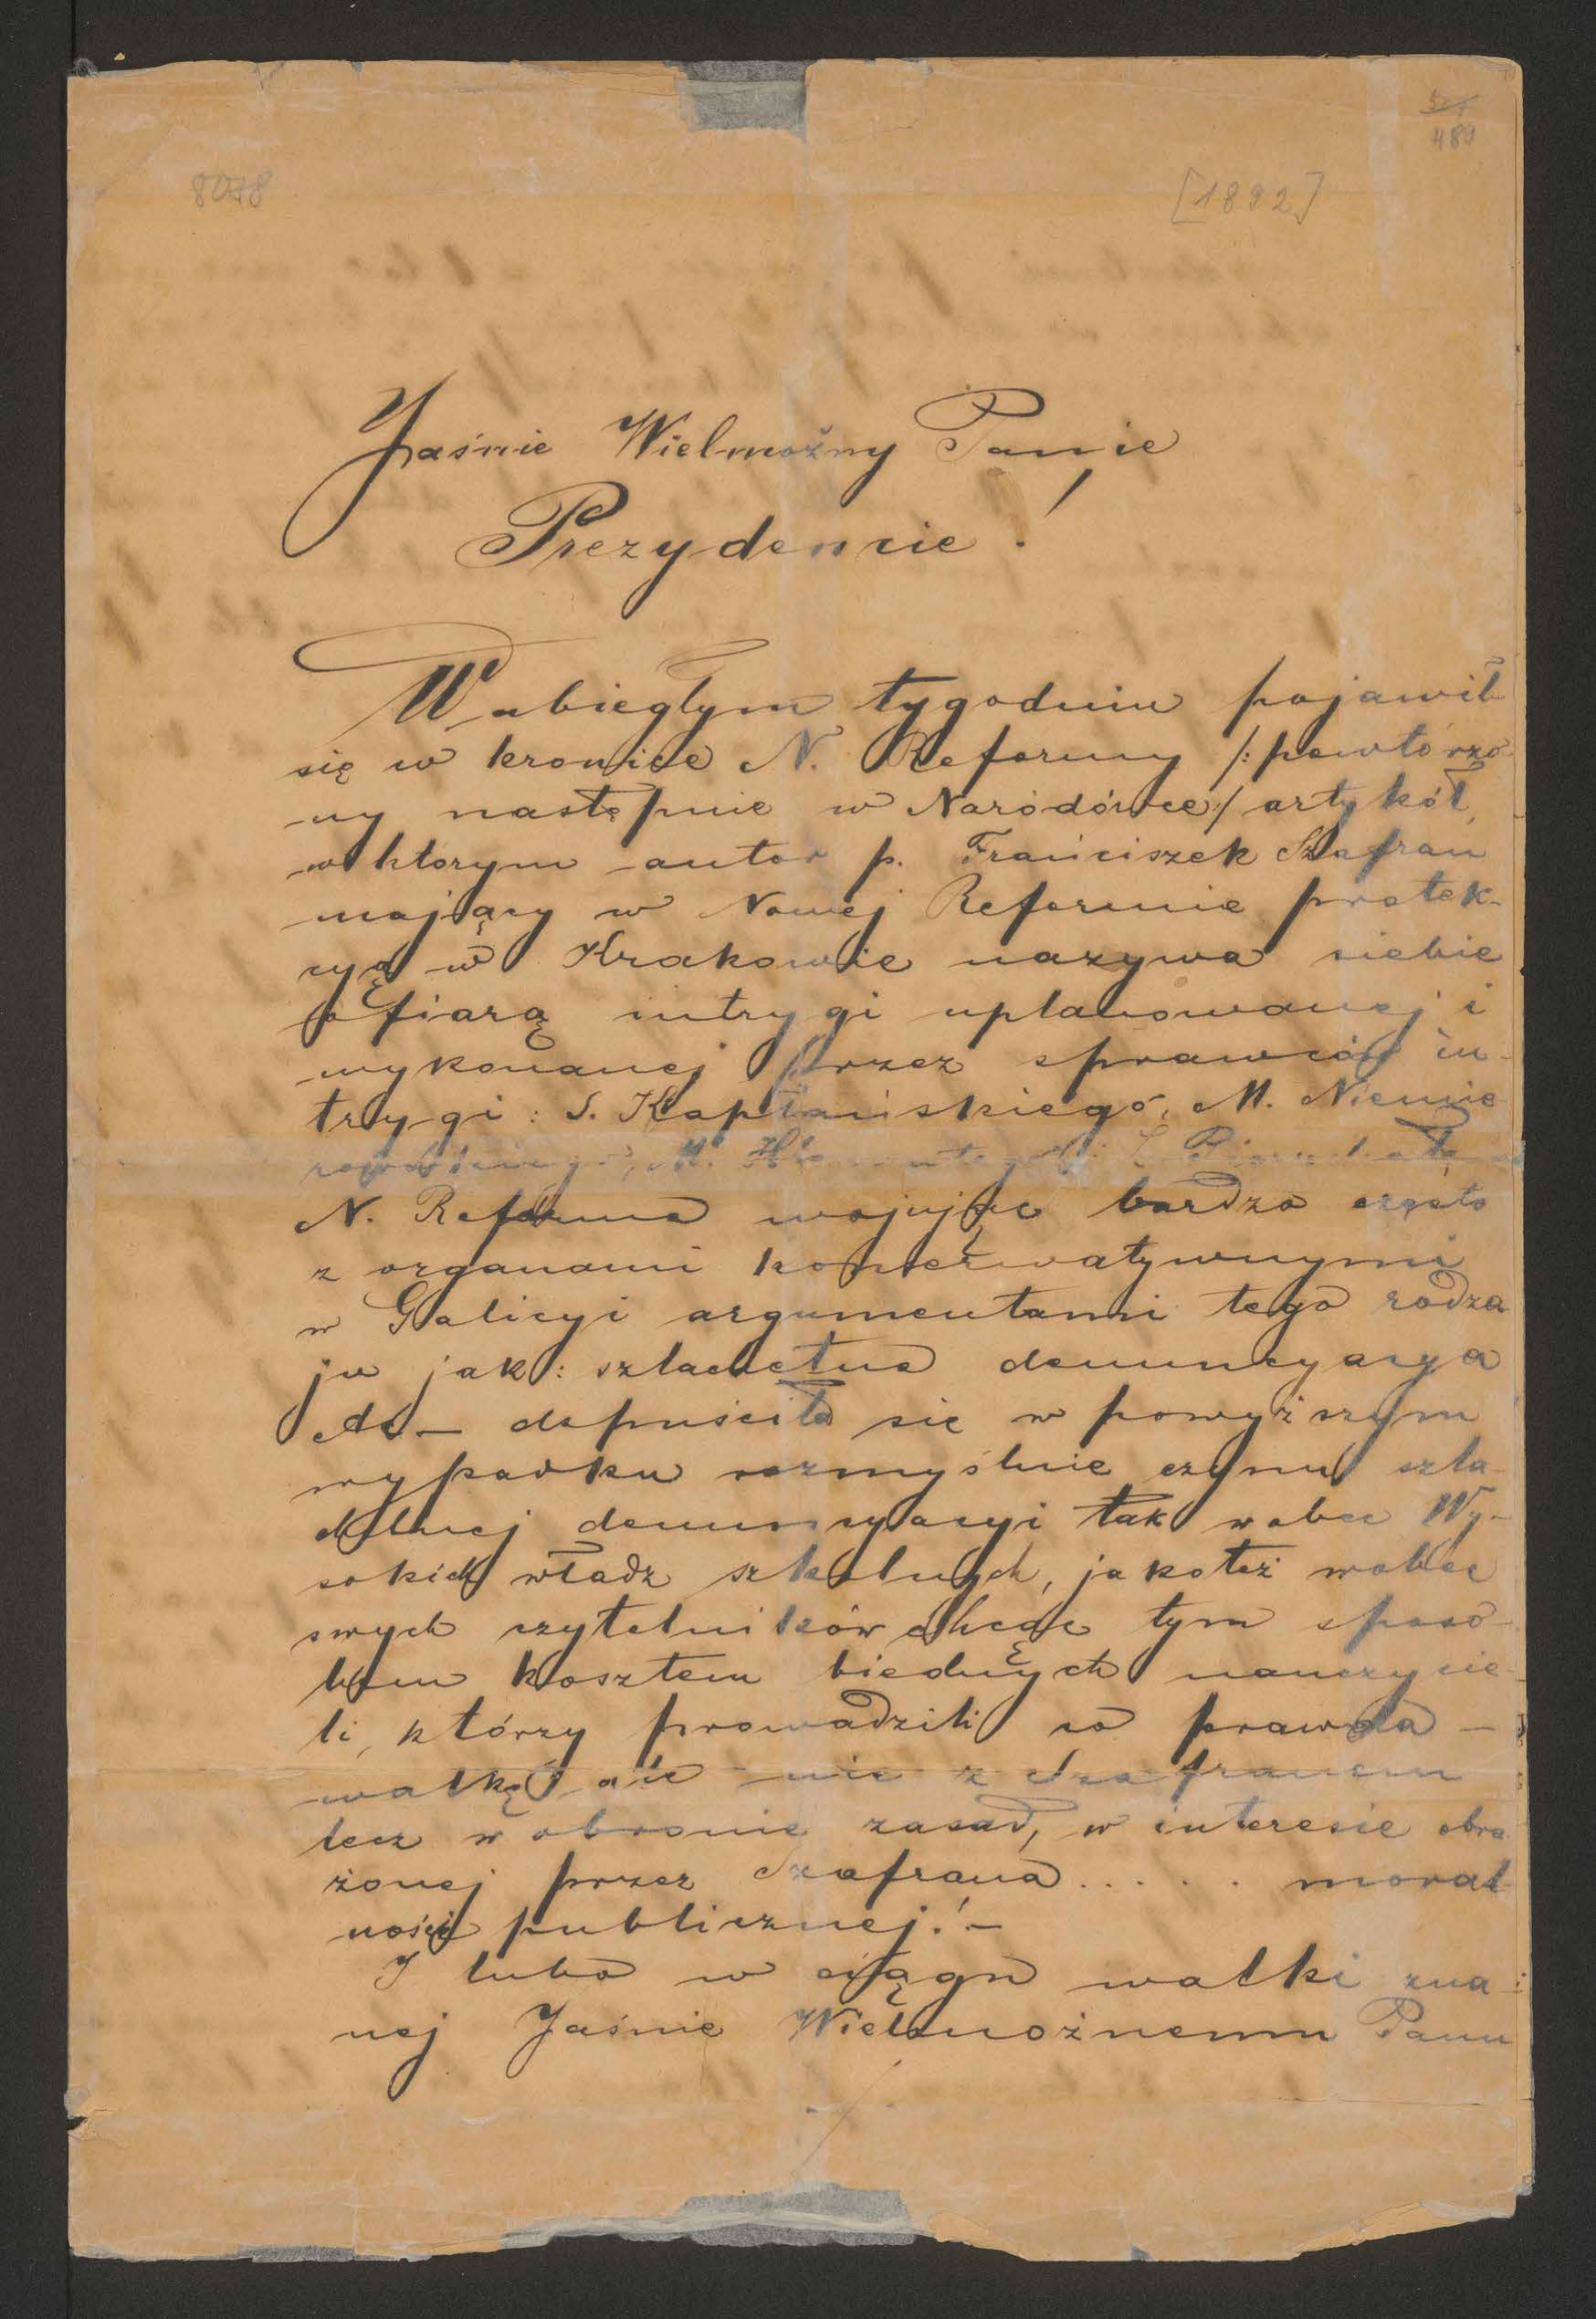 489
8078
[1892]
Jaśnie Wielmożny Panie
Prezydencie!
W ubiegłym tygodniu pojawił
się w kronice N. Reformy /:powtórzo
ny następnie w Naródówce:/ artykół,
w którym autor p. Franciszek Szafran
mający w Nowej Reformie protek-
cyą w Krakowie nazywa siebie
ofiarą intrygi uplanowanej i
wykonanej przez sprawców in-
trygi: S. Kapłańskiego, M. Niemie
N. Reforma wojując bardzo często
z organami konserwatywnymi
w Galicyi argumentami tego rodza
ju jak: szlachetna denuncyacya
etc_ dopuściła się w powyższym
wypadku rozmyślnie czynu szla-
chetnej denuncyacyi tak wobec Wy-
sokich władz szkolnych, jakoteż wobec
swych czytelników chcąc tym sposo-
bem kosztem biednych nauczycie-
li, którzy prowadzili co prawda –
walkę ale nie z Szafranem
lecz w obronie zasad, w interesie obra
żonej przez Szafrana..... moral-
ności publicznej! –
I lubo w ciągu walki zna-
nej Jaśnie Wielmożnemu Panu